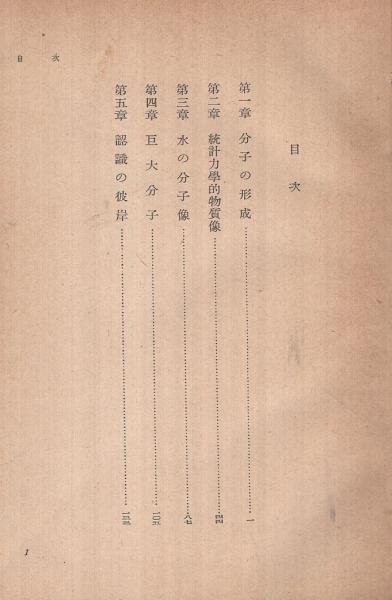 目次
目次
第一章 分子の形成……一
第二章 統計力學的物質像……四四
第三章 水の分子像……八七
第四章 巨大分子……一〇五
第五章 認識の彼岸……一三三
1